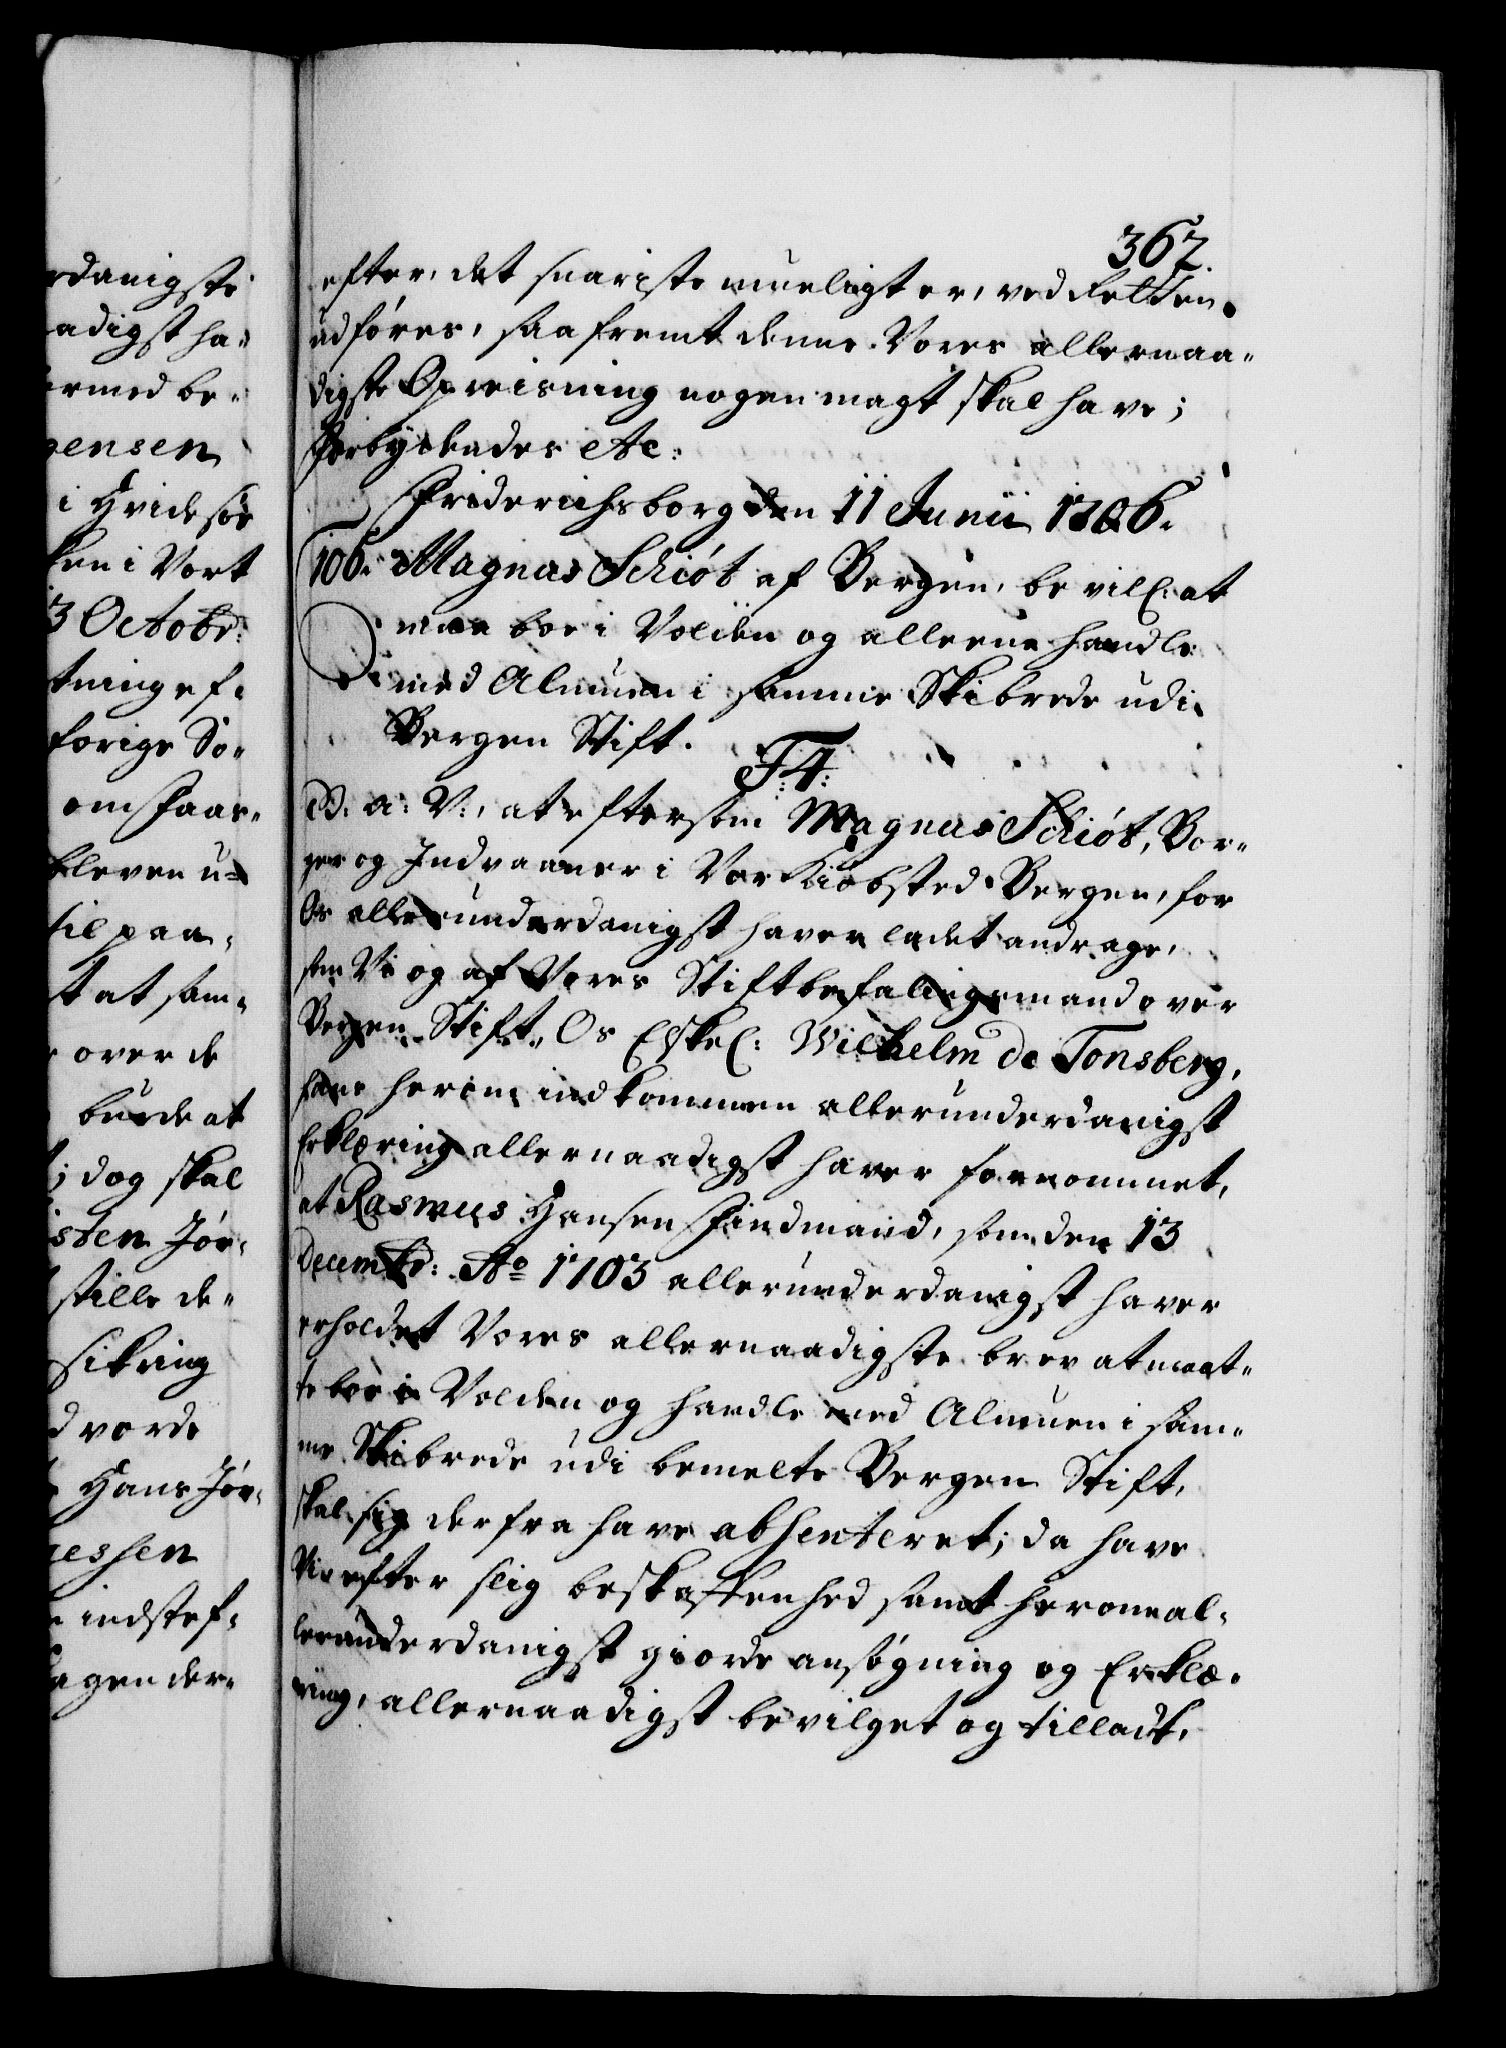 rdanigste
adigst ha-
ermed be-
gensen
i Hvidesøe
ken i Vort
13 Octobr:
tning ef-
forige Sø-
om Faar-
bleven u-
til paa-
st at sam-
over de
burde at
t; dog skal
isten Jør-
stille de-
sikring
d vorde
Hans Jør-
essen
indstef-
agen der-
367.
efter, det snariste mueligt er, ved Retten
udføres, saafremt denne Vores allernaa-
digste Opreisning nogen magt skal have;
Forbydendes etc:
Friderichsborg den 11 Junii 1706.
106. Magnus Schiøt af Bergen, bevilg: at
maa boe i Volden og alleene handle
med Almuen i samme Skibrede udi
Bergen Stift.
F: 4:
G: a: V:, at eftersom Magnus Schiøt, Bor-
ger og Indvaaner i Vor Kiøbsted Bergen, for
Os allerunderdanigst haver ladet andrage,
som Vi og af Vores Stiftbefalingsmand over
Bergen Stift, Os Elskel: Wilhelm de Tonsberg,
hans herom indkommen allerunderdanigst
Erklæring allernaadigst haver fornommet,
at Rasmus Hansen Findmand, som den 13
Decembr: Ao 1703 allerunderdanigst haver
erholdet Vores allernaadigste brev at maat-
te boe i Volden og handle med Almuen i sam-
me Skibrede udi bemelte Bergen Stift,
skal sig derfra have absenteret; da have
Vi efter slig beskaffenhed samt herom al-
lerunderdanigst giorde ansøgning og Erklæ-
ring, allernaadigst bevilget og tilladt,